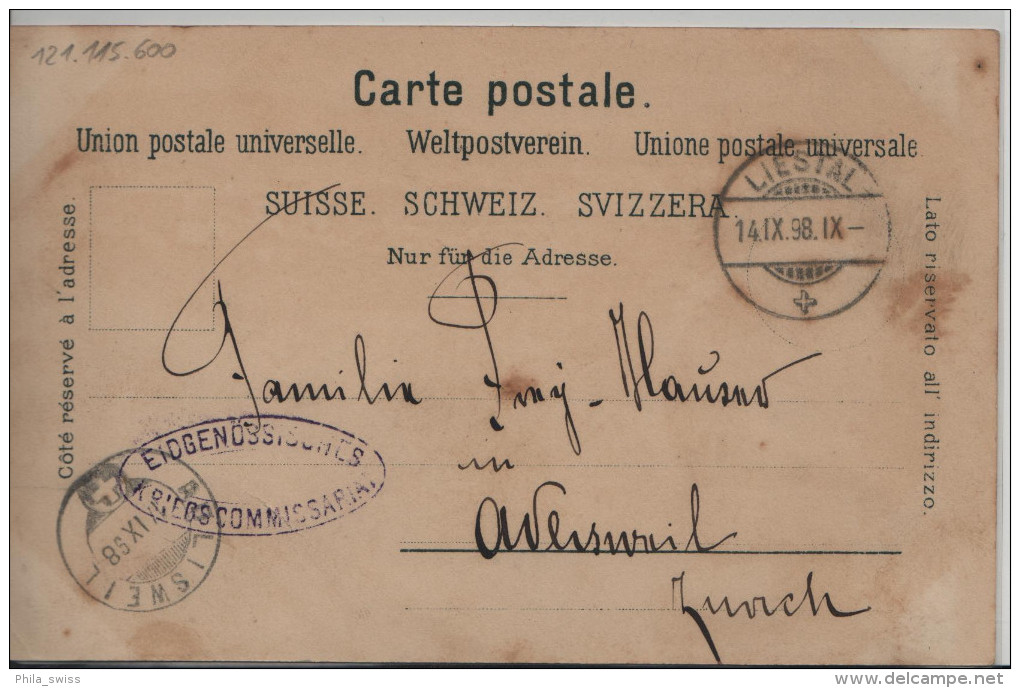 121.115.600
Carte postale.
Union postale universelle. Weltpostverein. Unione postale universale.
SUISSE. SCHWEIZ. SVIZZERA.
Nur für die Adresse.
Côté réservé à l'adresse.
Lato riservato all' indirizzo.
LIESTAL
14.IX.98.IX–
Familie Frey-Hauser
in
Adlisweil
Zürich
EIDGENÖSSISCHES
KRIEGSCOMMISSARIAT
ADLISWEIL
IX 98
Phila_swiss